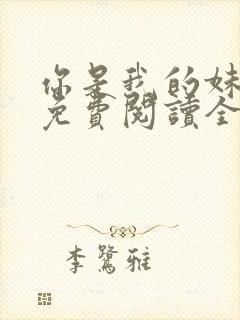 你是我的妹
免費閱讀全
李鷺雅